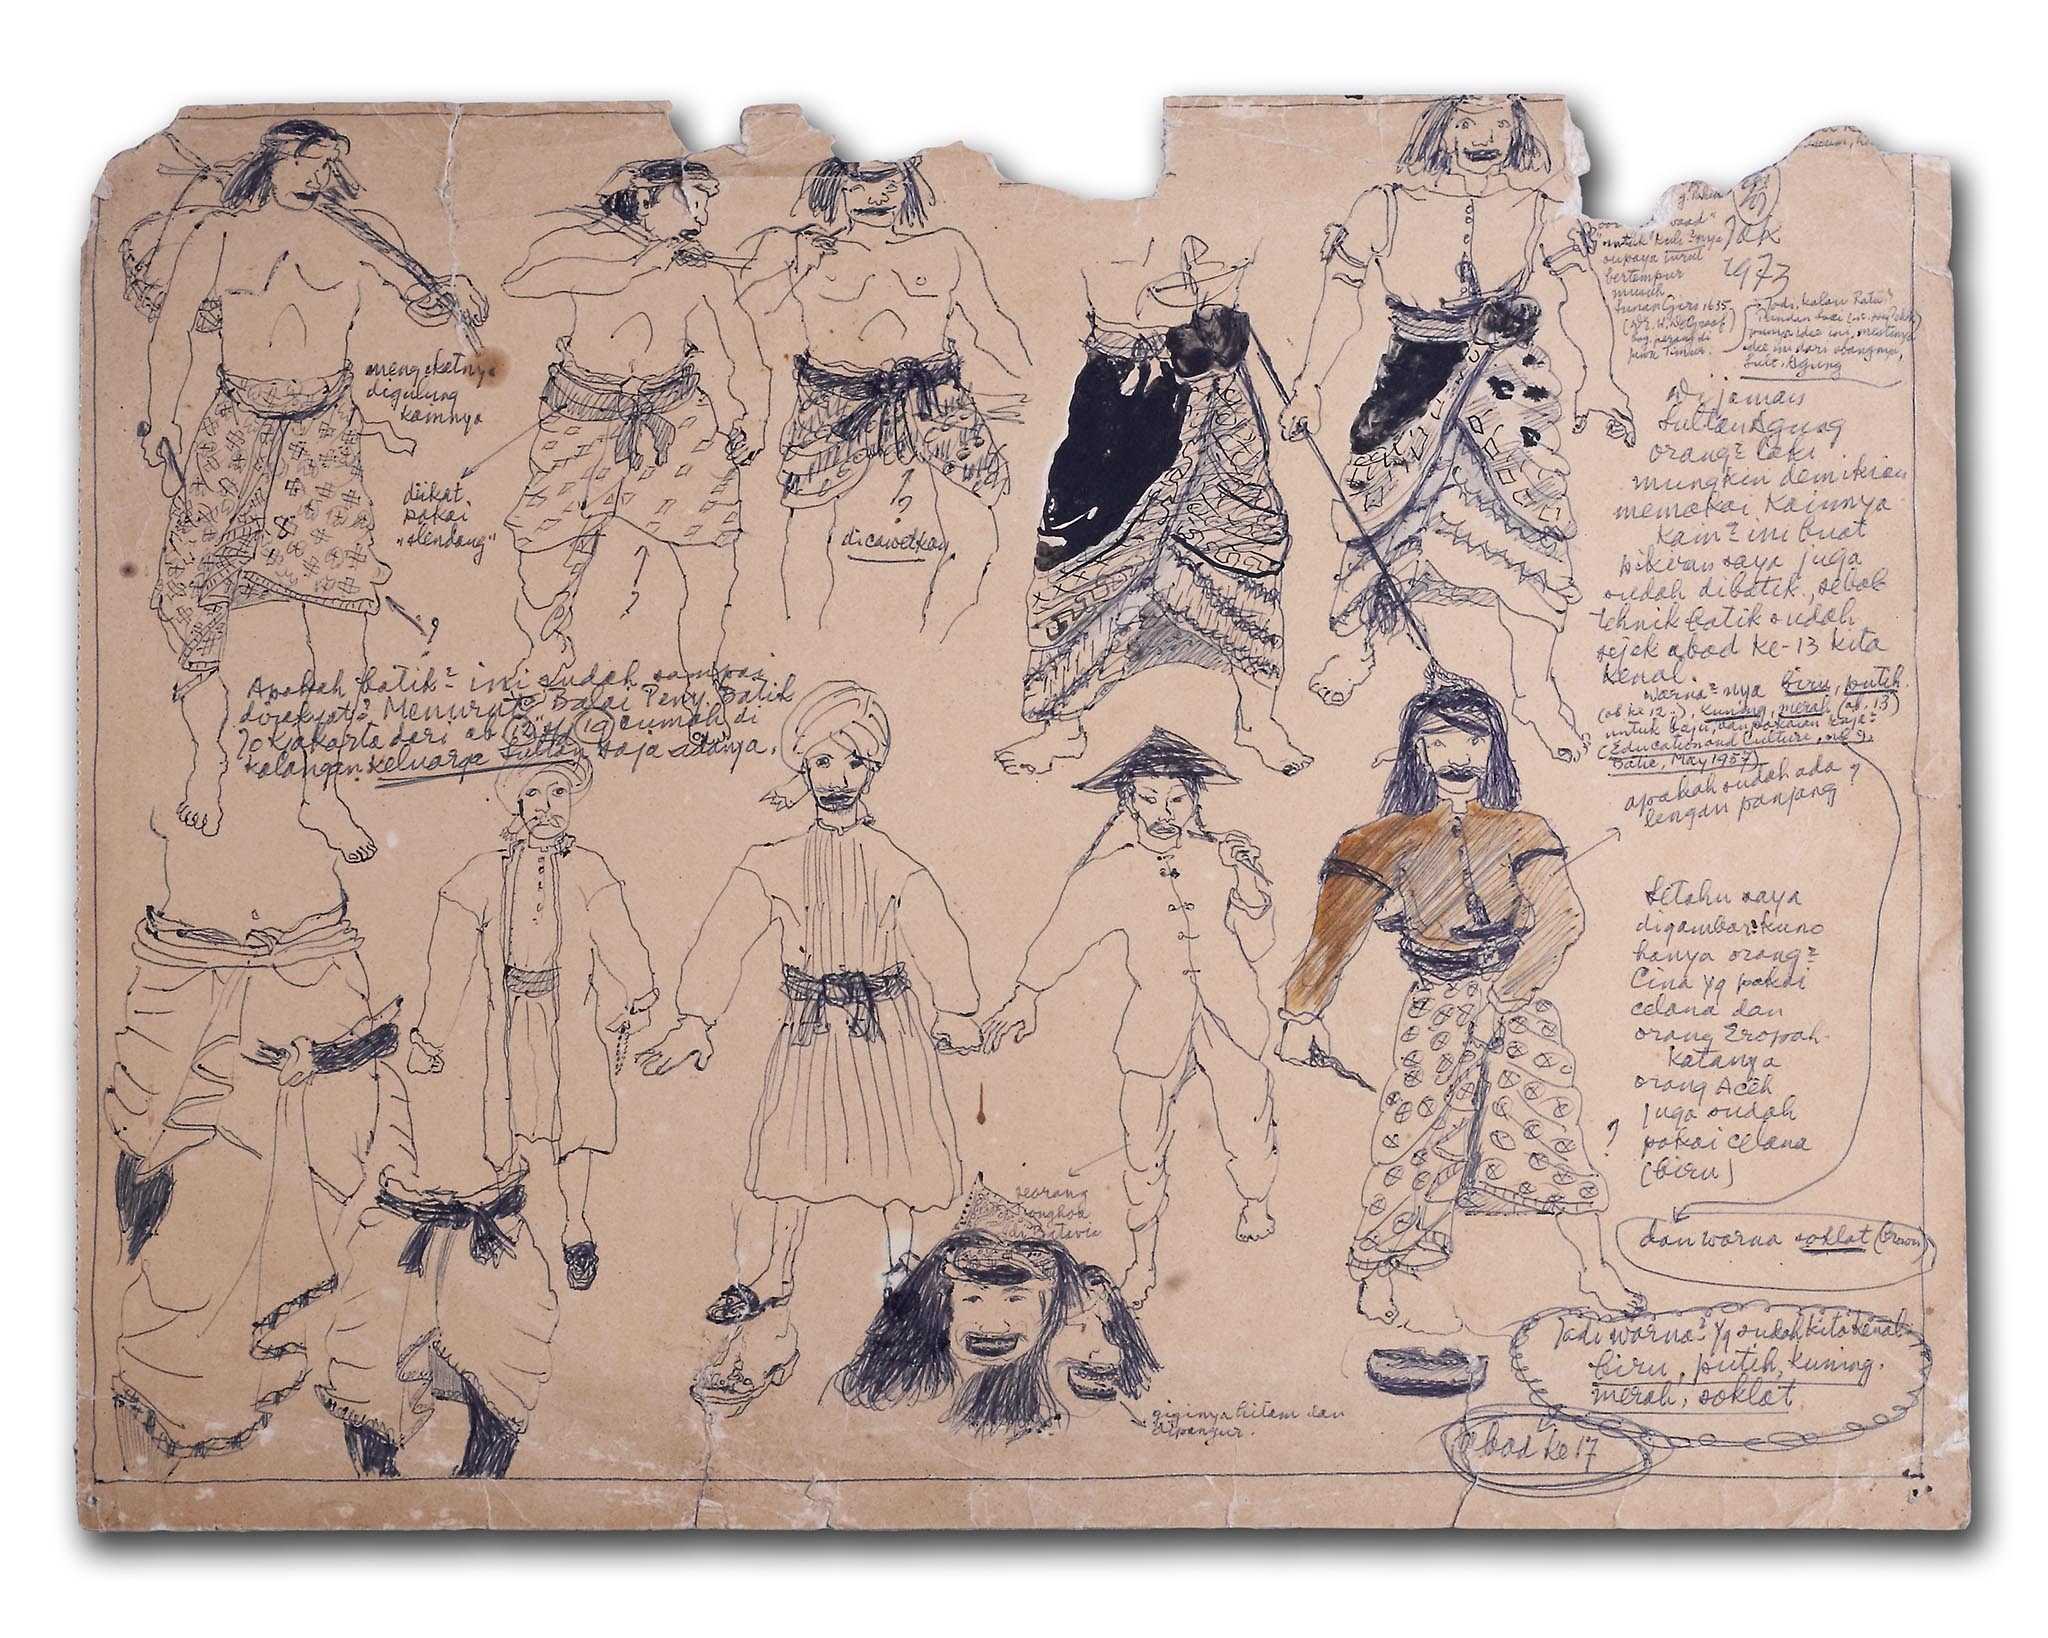 mengekatnya
digulung
kainnya
diikat
pakai
"slendang"
?
?
?
dicawetkan
Apakah batik² ini sudah sampai
dirakyat? Menurut Balai Peny. Batik
Jokjakarta dari ab 12 s/d 19 cuma di
kalangan keluarga Sultan saja adanya.
Jak
1973
"untuk kuli²nya
supaya turut
bertempur
musuh
Sunan Giri 1635
(Dr. H. De Graaf
bag. perang di
Jawa Timur.
Jadi, kalau Ratu
punya idee ini, mestinya
idee ini dari abangnya,
Sult. Agung
Di jaman
Sultan Agung
orang² laki
mungkin demikian
memakai kainnya
kain² ini buat
pikiran saya juga
sudah dibatik, sebab
tehnik batik sudah
sejak abad ke-13 kita
kenal.
Warna² nya biru, putih
(ab ke 12..), kuning, merah (ab. 13)
untuk baju, dan pakaian raja²
(Education and Culture, no 9,
Batic, May 1957)
apakah sudah ada ?
lengan panjang
Setahu saya
digambar² kuno
hanya orang²
Cina yg pakai
celana dan
orang Eropah.
Katanya
orang Aceh
juga sudah
pakai celana
(biru)
?
dan warna soklat (brown)
Jadi warna² yg sudah kita kenal
biru, putih, kuning.
merah, soklat
abad ke 17
seorang
Tiongkok
di Batavia
giginya hitam dan
dipangur.